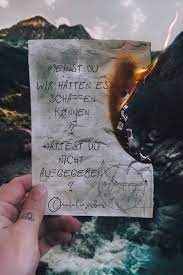 MEINST DU
WIR HÄTTEN ES
SCHAFFEN
KÖNNEN
?
HÄTTEST DU
NICHT
AUFGEGEBEN
?